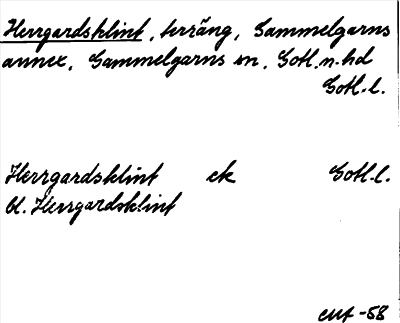 Herrgardsklint, terräng, Gammelgarns
annex, Gammelgarns sn, Gotl. n. hd
Gotl. l.
Herrgardsklint ek Gotl. l.
bl. Herrgardsklint
CMT -58